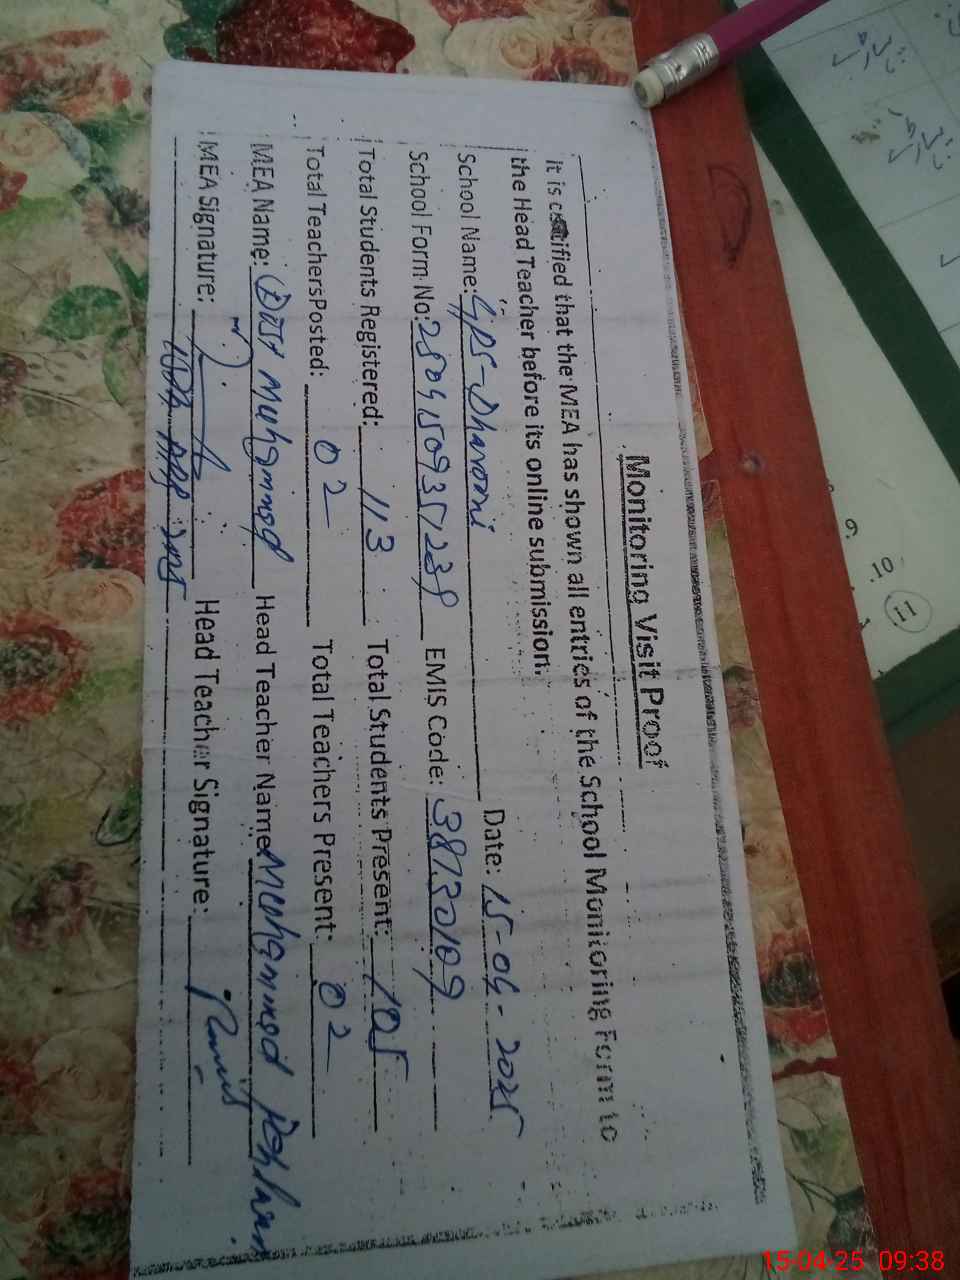 Monitoring Visit Proof
it is certified that the MEA has shown all entries of the School Monitoring Form to
the Head Teacher before its online submission.
School Name: GPS-Dharomi Date: 15-04-2025
School Form No: EMIS Code: 38130109
Total Students Registered: 113 Total Students Present: 105
Total Teachers Posted: 02 Total Teachers Present: 02
MEA Name: Dost Muhammad Head Teacher Name: Mohammed
MEA Signature: Head Teacher Signature:
9
10
11
15-04-25 09:38